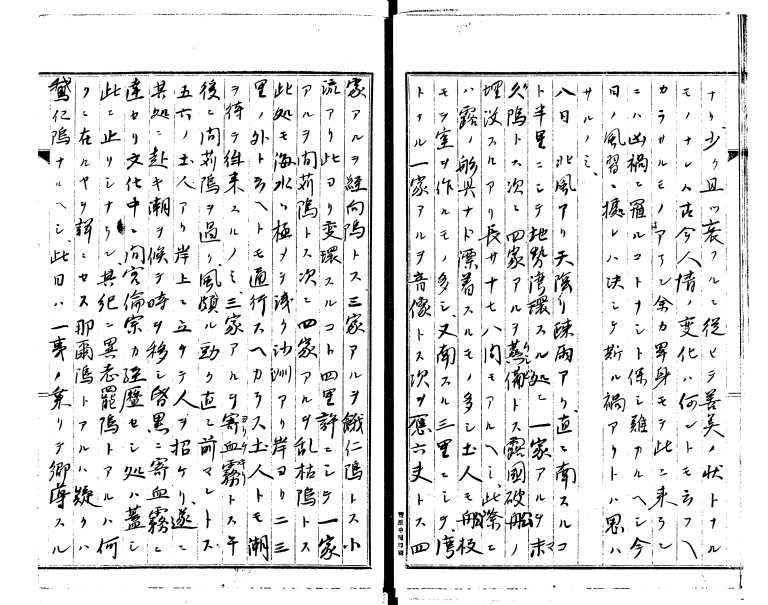 ナリ少ク且ツ衰フルニ從ヒテ善美ノ狀トナル
モノナレハ古今人情ノ変化ハ何ントモ云フヘ
カラサルモノアラン余カ單身モテ此ニ来ラン
ニハ凶禍ニ罹ルコトナシト保シ難カルヘシ今
日ノ風習ニ據レハ決シテ斯ル禍アリトハ思ハ
サルノミ
八日 北風アリ天陰リ疎雨アリ直ニ南スルコ
ト半里ニシテ地勢湾環スル処ニ一家アルヲ
塢トス次ニ四家アルヲ備トス露國破船ノ
埋没スルアリ長サ十七八間モアルヘシ此際ニ
ハ露ノ船具ナド漂着スルモノ多シ土人モ船板
モテ室ヲ作ルモノ多シ又南スル三里ニシテ湾
トナル一家アルヲ音像トス次ヲ應六吏トス四
家アルヲ經向塢トス三家アルヲ餓仁塢トス小
流アリ此ヨリ変環スルコト四里許ニシテ一家
アルヲ向荊塢トス次ニ四家アルヲ乱枯塢トス
此処モ海水ハ極メテ浅ク沙洲アリ岸ヨリ二三
里ノ外ト云ヘトモ通行スヘカラス土人トモ潮
ヲ待テ徃来スルノミ三家アルヲ寄血霧トス午
後ニ向荊塢ヲ過リ風頗ル動ク直ニ前マントス
五六ノ土人アリ岸上ニ立タテ人ヲ招ケリ遂ニ
其処ニ赴キ潮ヲ候テ時ヲ移シ昏黒ニ寄血霧ニ
達セリ文化中ニ間宮倫宗カ経歴セシ処ハ蓋シ
此ニ止リシナラン其紀ニ異老罷塢トアルハ何
クニ在ルヤヲ詳ニセス那爾塢トアルハ疑クハ
鵞仁塢ナルヘシ此日ハ一事ノ来リテ郷導スル